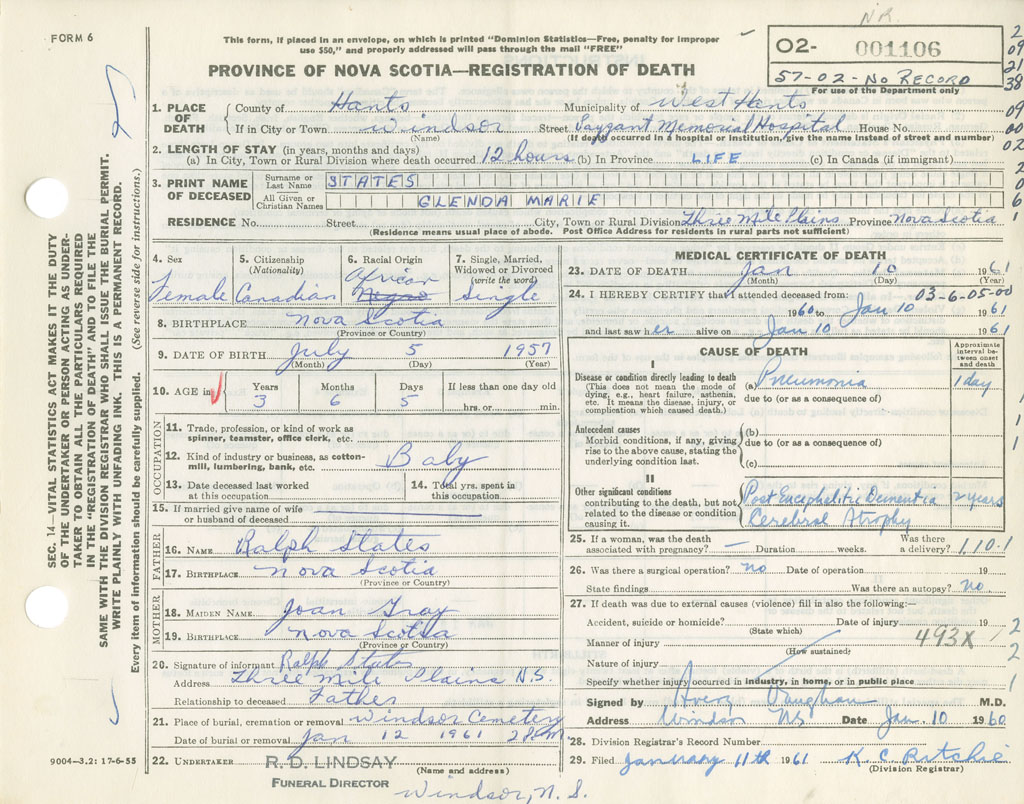 N.R.
FORM 6
This form, if placed in an envelope, on which is printed "Dominion Statistics—Free, penalty for improper
use $50," and properly addressed will pass through the mail "FREE"
PROVINCE OF NOVA SCOTIA—REGISTRATION OF DEATH
02- 001106
57-02-No RECORD
For use of the Department only
2
09
21
38
09
00
02
2
0
6
1
SEC. 14—VITAL STATISTICS ACT MAKES IT THE DUTY
OF THE UNDERTAKER OR PERSON ACTING AS UNDER-
TAKER TO OBTAIN ALL THE PARTICULARS REQUIRED
IN THE "REGISTRATION OF DEATH" AND TO FILE THE
SAME WITH THE DIVISION REGISTRAR WHO SHALL ISSUE THE BURIAL PERMIT.
WRITE PLAINLY WITH UNFADING INK. THIS IS A PERMANENT RECORD.
Every item of information should be carefully supplied. (See reverse side for instructions.)
1. PLACE OF DEATH County of Hants Municipality of West Hants
If in City or Town Windsor Street Payzant Memorial Hospital House No.
(Name) (If death occurred in a hospital or institution, give name instead of street and number)
2. LENGTH OF STAY (in years, months and days)
(a) In City, Town or Rural Division where death occurred 12 hours (b) In Province LIFE (c) In Canada (if immigrant)
3. PRINT NAME OF DECEASED
Surname or Last Name STATES
All Given or Christian Names GLENDA MARIE
RESIDENCE No. Street City, Town or Rural Division Three Mile Plains Province Nova Scotia
(Residence means usual place of abode. Post Office Address for residents in rural parts not sufficient)
4. Sex Female
5. Citizenship (Nationality) Canadian
6. Racial Origin African Negro
7. Single, Married, Widowed or Divorced (write the word) Single
8. BIRTHPLACE Nova Scotia
(Province or Country)
9. DATE OF BIRTH July 5 1957
(Month) (Day) (Year)
10. AGE in Years 3 Months 6 Days 5 If less than one day old hrs. or min.
OCCUPATION
11. Trade, profession, or kind of work as
spinner, teamster, office clerk, etc.
12. Kind of industry or business, as cotton-
mill, lumbering, bank, etc. Baby
13. Date deceased last worked
at this occupation
14. Total yrs. spent in
this occupation
15. If married give name of wife
or husband of deceased
FATHER
16. NAME Ralph States
17. BIRTHPLACE Nova Scotia
(Province or Country)
MOTHER
18. MAIDEN NAME Joan Gray
19. BIRTHPLACE Nova Scotia
(Province or Country)
20. Signature of informant Ralph States
Address Three Mile Plains N.S.
Relationship to deceased Father
21. Place of burial, cremation or removal Windsor Cemetery
Date of burial or removal Jan 12 1961 2 P.M
22. UNDERTAKER R. D. LINDSAY
(Name and address)
FUNERAL DIRECTOR
Windsor, N. S.
9004-3.2: 17-6-55
MEDICAL CERTIFICATE OF DEATH
23. DATE OF DEATH Jan 10 1961
(Month) (Day) (Year)
24. I HEREBY CERTIFY that I attended deceased from: 03-6-05-00
1960 to Jan 10 1961
and last saw her alive on Jan 10 1961
CAUSE OF DEATH
Approximate
interval be-
tween onset
and death
I
Disease or condition directly leading to death
(This does not mean the mode of
dying, e.g., heart failure, asthenia,
etc. It means the disease, injury, or
complication which caused death.)
(a) Pneumonia 1 day
due to (or as a consequence of)
Antecedent causes
Morbid conditions, if any, giving
rise to the above cause, stating the
underlying condition last.
(b)
due to (or as a consequence of)
(c)
II
Other significant conditions
contributing to the death, but not
related to the disease or condition
causing it.
Post Encephalitic Dementia 2 years
Cerebral Atrophy
25. If a woman, was the death
associated with pregnancy? — Duration weeks. Was there
a delivery? 1.10.1
26. Was there a surgical operation? no Date of operation 19
State findings Was there an autopsy? No.
27. If death was due to external causes (violence) fill in also the following:—
Accident, suicide or homicide? Date of injury 19
(State which)
Manner of injury 493X
(How sustained)
Nature of injury
Specify whether injury occurred in industry, in home, or in public place
Signed by Avery Vaughan M.D.
Address Windsor NS Date Jan. 10 1960
28. Division Registrar's Record Number
29. Filed January 11th 1961 K. C. Ritchie
(Division Registrar)
1
1
1
1
2
2
1